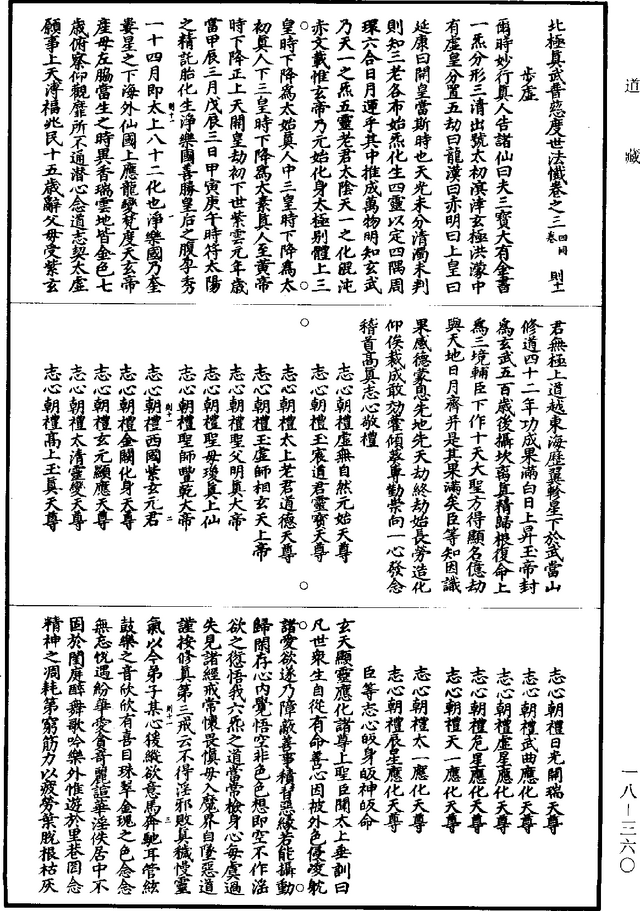 道藏
北極真武普慈度世法懺卷之三 四同卷 則十一
步虛
爾時妙行真人告諸仙曰夫三寶大有金書
一炁分形三清出號太初溟涬玄極洪濛中
有虛皇分置五劫曰龍漢曰赤明曰上皇曰
延康曰開皇當斯時也天光未分清濁未判
則知三老各布始炁化生四靈以定四隅周
環六合日月運乎其中推成萬物明知玄武
乃天一之炁五靈老君太陰天一之化混沌
赤文載惟玄帝乃元始化身太極別體上三
皇時下降為太始真人中三皇時下降為太
初真人下三皇時下降為太素真人至黃帝
時下降正上天開皇劫初下世紫雲元年歲
當甲辰三月戊辰三日甲寅庚午時符太陽
之精託胎化生淨樂國善勝皇后之腹孕秀
一十四月即太上八十二化也淨樂國乃奎
婁星之下海外仙國上應龍變梵度天玄帝
產母左脇當生之時異香瑞雲地皆金色七
歲俯察仰觀靡所不通潛心念道志契太虛
願事上天溥福兆民十五歲辭父母受紫玄
君無極上道越東海歷翼軫星下於武當山
修道四十二年功成果滿白日上昇玉帝封
為玄武五百歲後攝坎離真精歸根復命上
為三境輔臣下作十天大聖方得顯名億劫
與天地日月齊并是其果滿矣臣等知因識
果感德蒙恩先地先天劫終劫始長勞造化
仰俟裁成敢効葵傾恭專勤崇向一心發念
稽首高真志心敬禮
志心朝禮虛無自然元始天尊
志心朝禮玉宸道君靈寶天尊
志心朝禮太上老君道德天尊
志心朝禮玉虛師相玄天上帝
志心朝禮聖父明真大帝
志心朝禮聖母瓊真上仙
志心朝禮聖師豐乾大帝
志心朝禮西國紫玄元君
志心朝禮金闕化身天尊
志心朝禮玄元顯應天尊
志心朝禮太清靈變天尊
志心朝禮高上玉真天尊
志心朝禮日光開瑞天尊
志心朝禮武曲應化天尊
志心朝禮虛星應化天尊
志心朝禮危星應化天尊
志心朝禮天一應化天尊
志心朝禮太一應化天尊
志心朝禮辰星應化天尊
臣等志心皈身皈神皈命
玄天顯靈應化諸尊上聖臣聞太上垂訓曰
凡世眾生自從有命善心因被外色侵凌躭
諸愛欲遂乃障蔽善事積習惡緣若能攝動
歸閑存心內覺悟空非色色想即空不作滛
欲之愆悟我六炁之道當常檢身心每虞過
失見諸經戒常懷畏慎毋入魔界自墜惡道
謹按修真第三戒云不得淫邪敗真穢慢靈
氣以今弟子其心後縱欲意馬奔馳耳管絃
鼓樂之音欣欣有喜目珠翠金瑰之色念念
無忘恍遇紛華愛貪奇麗諠華淫佚居中不
因於閨屏醉舞歌吟樂外惟遊於里巷罔念
精神之凋耗第窮筋力以疲勞葉脫根枯灰
一八－三六〇